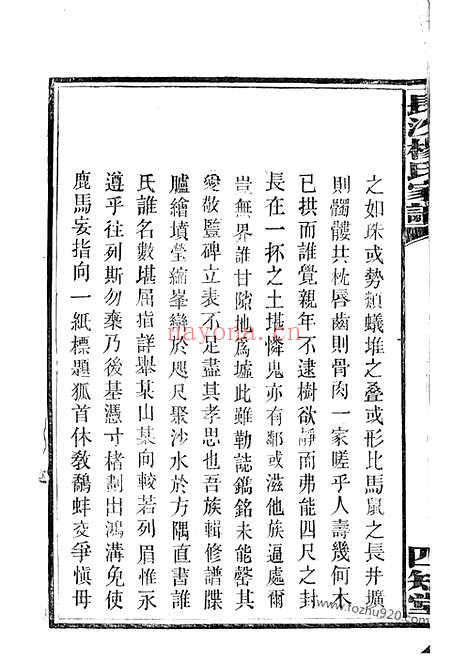 長沙楊氏家譜
四知堂
之如珠或勢類蟻堆之叠或形比馬鼠之長井壙
則髑髏共枕唇齒則骨肉一家嗟乎人壽幾何木
已拱而誰覺親年不逮樹欲靜而弗能四尺之封
長在一抔之土堪憐鬼亦有鄰或滋他族逼處爾
豈無界誰甘隙地爲墟此雖勒誌鐫銘未能罄其
愛敬豎碑立表不足盡其孝思也吾族輯修譜牒
臚繪墳塋縮峯巒於咫尺聚沙水於方隅直書誰
氏誰名數堪屈指詳舉某山某向較若列眉惟永
遵乎往列斯勿棄乃後基憑寸楮劃出鴻溝免使
鹿馬妄指向一紙標題狐首休教鷸蚌交爭愼毋
nayona.cn
www.fozhu9765.com